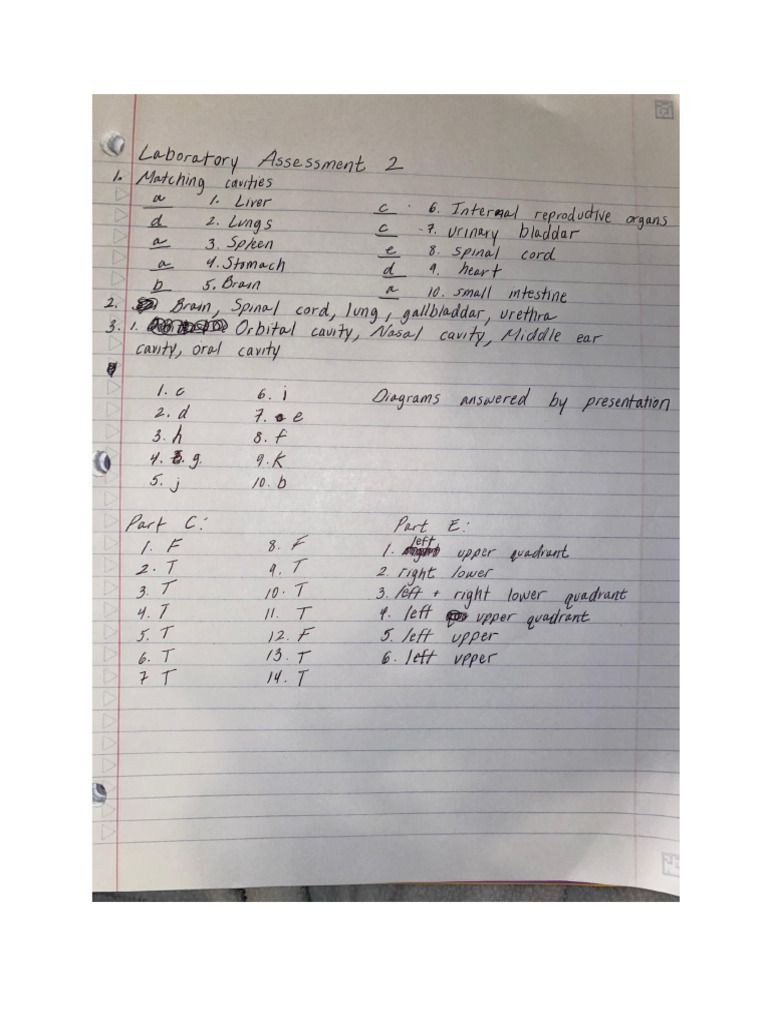 Laboratory Assessment 2
1. Matching cavities
a 1. Liver
d 2. Lungs
a 3. Spleen
a 4. Stomach
b 5. Brain
c 6. Internal reproductive organs
c 7. urinary bladdar
e 8. spinal cord
d 9. heart
a 10. small intestine
2. Brain, Spinal cord, lung, gallbladdar, urethra
3. 1. Orbital cavity, Nasal cavity, Middle ear
cavity, oral cavity
1. c
2. d
3. h
4. g.
5. j
6. i
7. e
8. f
9. K
10. b
Diagrams answered by presentation
Part C:
1. F
2. T
3. T
4. T
5. T
6. T
7 T
8. F
9. T
10. T
11. T
12. F
13. T
14. T
Part E:
1. left upper quadrant
2. right lower
3. left + right lower quadrant
4. left upper quadrant
5. left upper
6. left upper